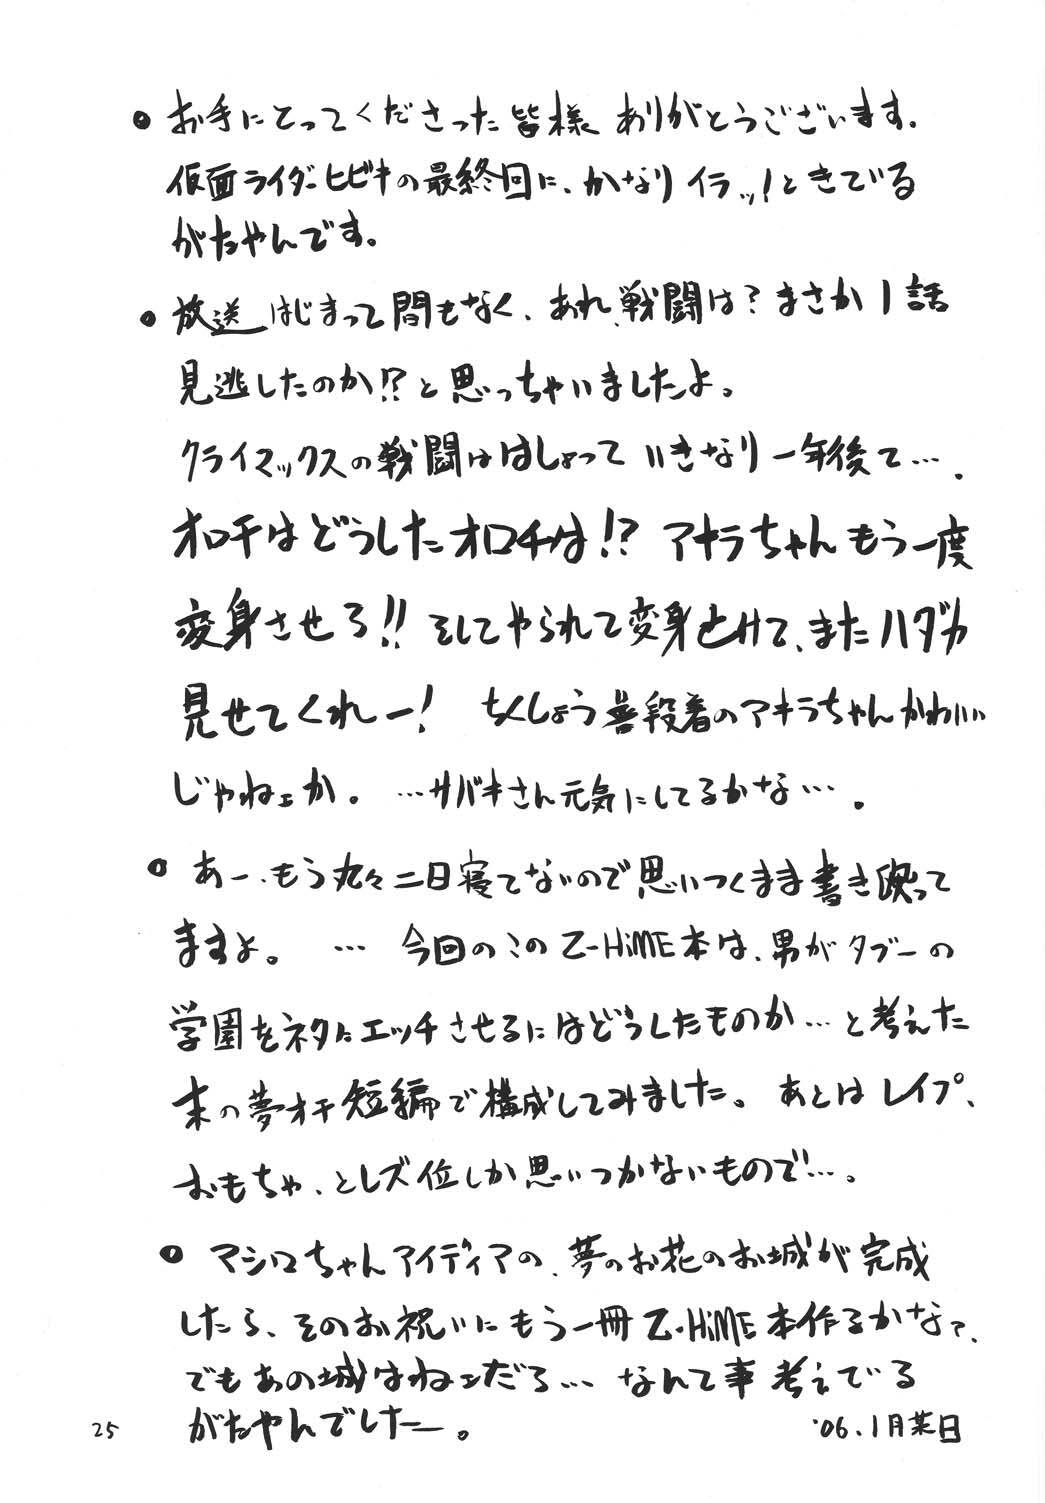 ・お手にとってくださった皆様 ありがとうございます.
仮面ライダーヒビキの最終回に、かなり イラッ!ときている
がたやんです。
・放送はじまって間もなく、あれ、戦闘は?まさか1話
見逃したのか!?と思っちゃいましたよ。
クライマックスの戦闘ははしょって いきなり一年後て….
オロチはどうしたオロチは!? アキラちゃんもう一度
変身させろ!! そしてやられて変身とけて、またハダカ
見せてくれー! ちくしょう普段着のアキラちゃんかわいい
じゃねェか。 …サバキさん元気にしてるかな…。
・あー、もう丸々二日寝てないので思いつくまま書き殴って
ますよ。 … 今回のこの乙-HiME本は、男がタブーの
学園をネタにエッチさせるにはどうしたものか…と考えた
末の夢オチ短編で構成してみました。あとはレイプ、
おもちゃ、とレズ位しか思いつかないもので…。
・マシロちゃんアイディアの、夢のお花のお城が完成
したら、そのお祝いにもう一冊 乙-HiME本作るかなァ、
でもあの城はねェだろ… なんて事考えている
がたやんでしたー。
'06.1月某日
25